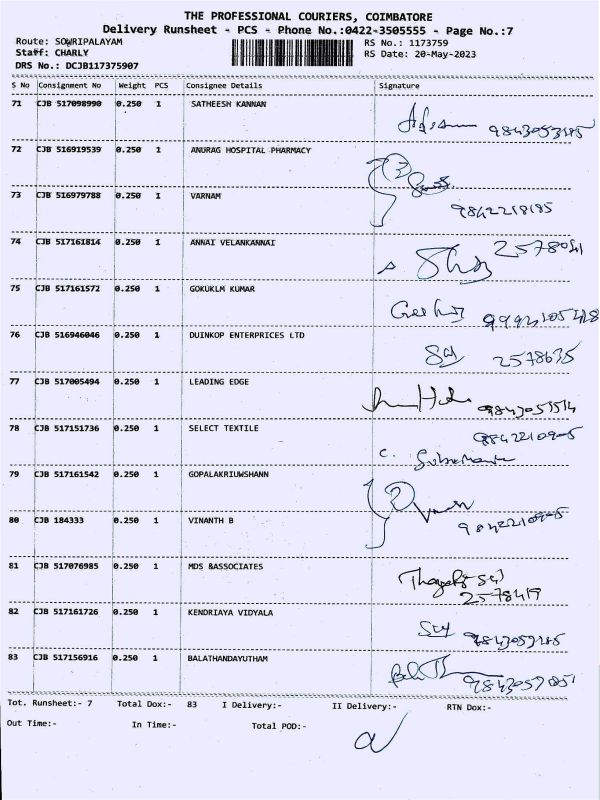 THE PROFESSIONAL COURIERS, COIMBATORE
Delivery Runsheet - PCS - Phone No.:0422-3505555 - Page No.:7
Route: SOWRIPALAYAM RS No.: 1173759
Staff: CHARLY RS Date: 20-May-2023
DRS No.: DCJB117375907
S No Consignment No Weight PCS Consignee Details Signature
71 CJB 517098990 0.250 1 SATHEESH KANNAN
72 CJB 516919539 0.250 1 ANURAG HOSPITAL PHARMACY
73 CJB 516979788 0.250 1 VARNAM 9842218185
74 CJB 517161814 0.250 1 ANNAI VELANKANNAI
75 CJB 517161572 0.250 1 GOKUKLM KUMAR
76 CJB 516946046 0.250 1 DUINKOP ENTERPRICES LTD 2578635
77 CJB 517005494 0.250 1 LEADING EDGE
78 CJB 517151736 0.250 1 SELECT TEXTILE
79 CJB 517161542 0.250 1 GOPALAKRIUWSHANN
80 CJB 184333 0.250 1 VINANTH B
81 CJB 517076985 0.250 1 MDS &ASSOCIATES
2578419
82 CJB 517161726 0.250 1 KENDRIAYA VIDYALA 9843059185
83 CJB 517156916 0.250 1 BALATHANDAYUTHAM
Tot. Runsheet:- 7 Total Dox:- 83 I Delivery:- II Delivery:- RTN Dox:-
Out Time:- In Time:- Total POD:-